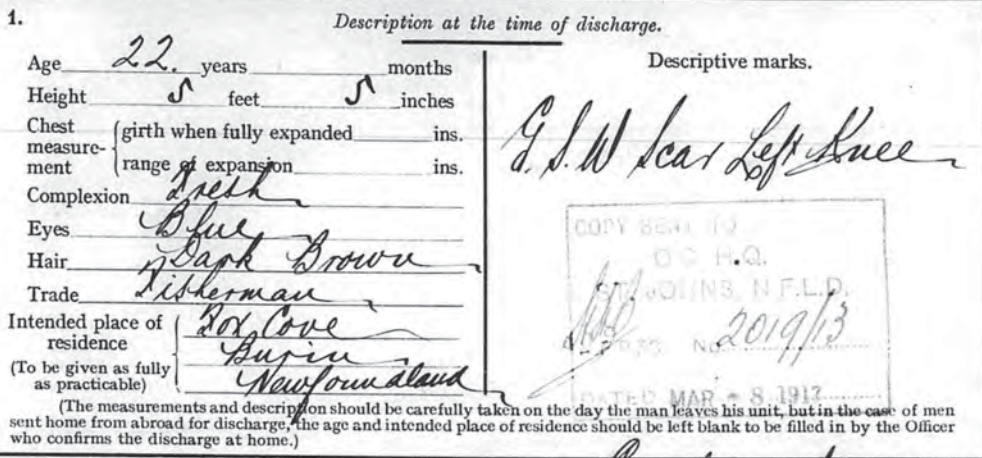 1.
Description at the time of discharge.
Age 22. years months
Height 5 feet 5 inches
Chest measure- ment
girth when fully expanded ins.
range of expansion ins.
Complexion Fresh
Eyes Blue
Hair Dark Brown
Trade Fisherman
Intended place of residence
(To be given as fully as practicable)
Fox Cove
Burin
Newfoundland
Descriptive marks.
G.S.W Scar Left Knee
COPY SENT TO
O C H.Q.
ST. JOHNS, N F.L.D.
No. 2019/13
DATED MAR - 8 1917
(The measurements and description should be carefully taken on the day the man leaves his unit, but in the case of men
sent home from abroad for discharge, the age and intended place of residence should be left blank to be filled in by the Officer
who confirms the discharge at home.)